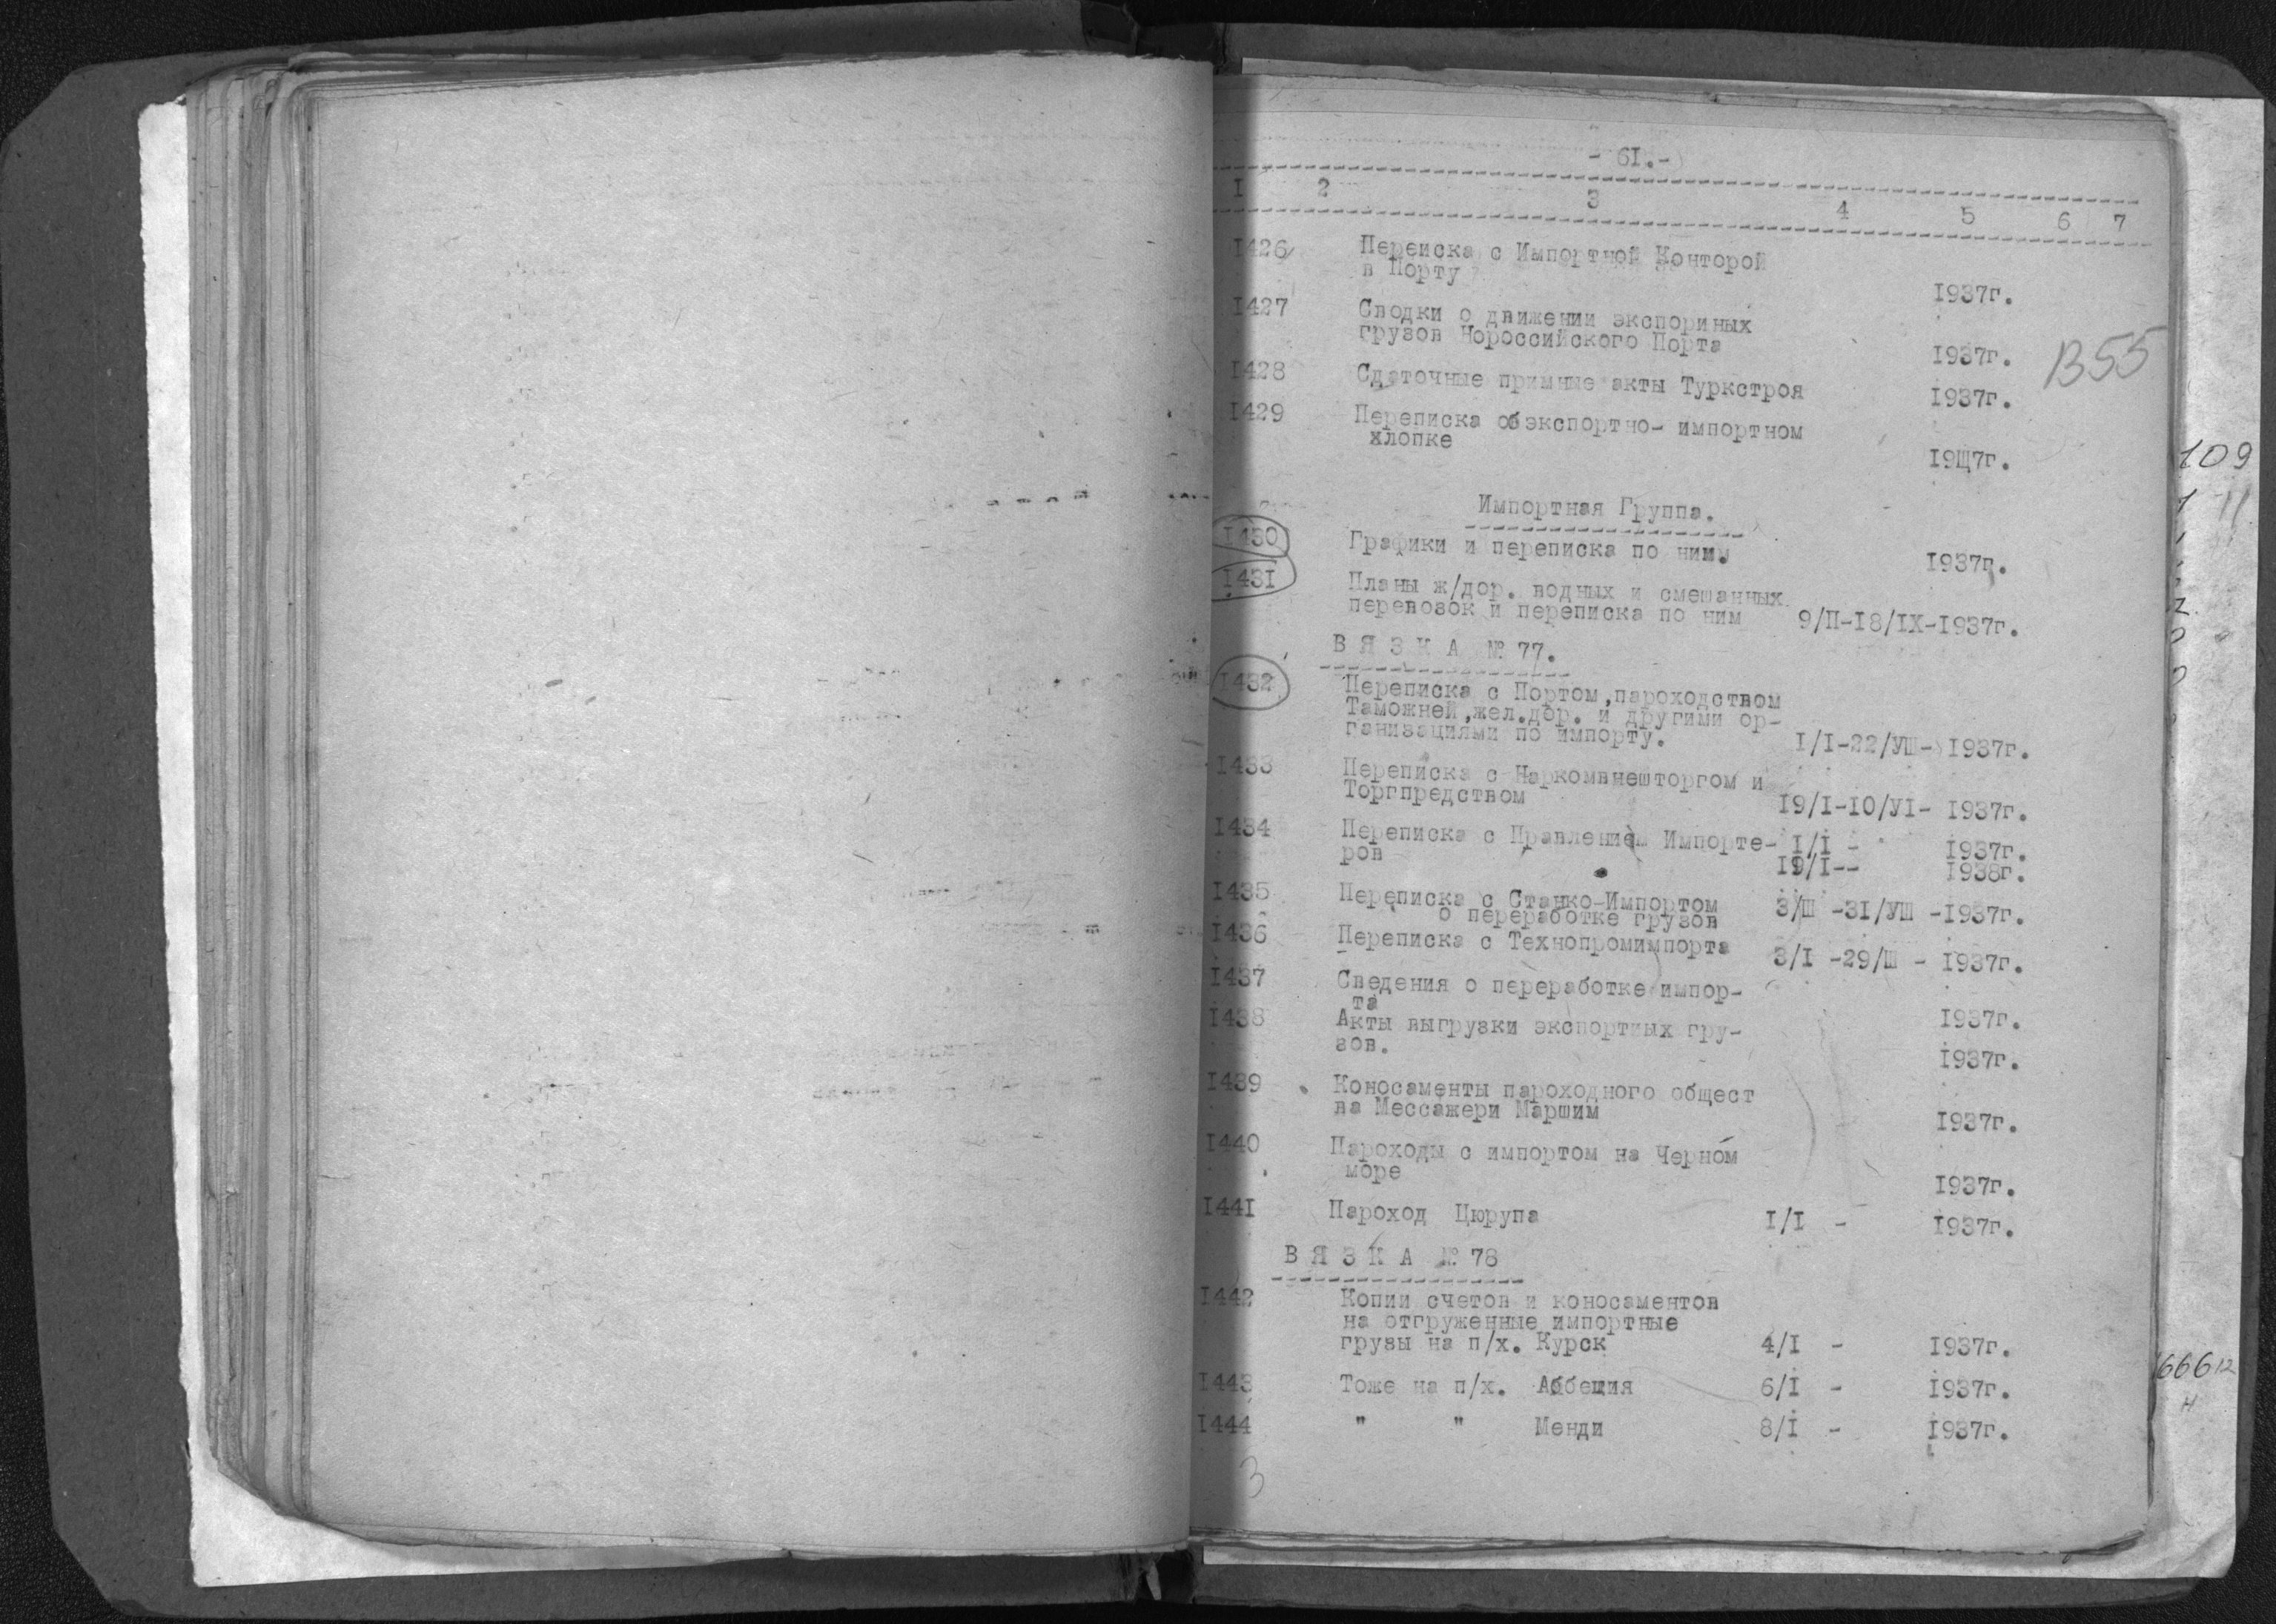 - 61.-
I 2 3 4 5 6 7
1426 Переиска с Импортной Конторой
в Порту 1937г.
1427 Сводки о движении экспориных
грузов Нороссийского Порта 1937г.
1355
1428 Сдаточные примные акты Туркстроя 1937г.
1429 Переписка об экспортно- импортном
хлопке 19Щ7г.
109
Импортная Группа.
1430 Графики и переписка по ним. 1937г.
1431 Планы ж/дор. водных и смешанных
перевозок и переписка по ним 9/П-18/IX-1937г.
В Я З К А № 77.
1432 Переписка с Портом,пароходством
Таможней,жел.дор. и другими ор-
ганизациями по импорту. I/I-22/УШ- 1937г.
1433 Переписка с Наркомвнешторгом и
Торгпредством 19/I-10/УI- 1937г.
1434 Переписка с Правлением Импорте- I/I - 1937г.
ров 19/I-- 1938г.
1435 Переписка с Станко-Импортом 3/Ш -31/УШ -1937г.
о переработке грузов
1436 Переписка с Технопромимпорта 3/I -29/Ш - 1937г.
1437 Сведения о переработке импор-
та 1937г.
1438 Акты выгрузки экспортных гру-
зов. 1937г.
1439 Коносаменты пароходного общест
ва Мессажери Маршим 1937г.
1440 Пароходы с импортом на Черном
море 1937г.
1441 Пароход Цюрупа I/I - 1937г.
В Я З К А № 78
1442 Копии счетов и коносаментов
на отгруженные импортные
грузы на п/х. Курск 4/I - 1937г.
1443 Тоже на п/х. Аббеция 6/I - 1937г.
666 12
1444 " " Менди 8/I - 1937г.
3